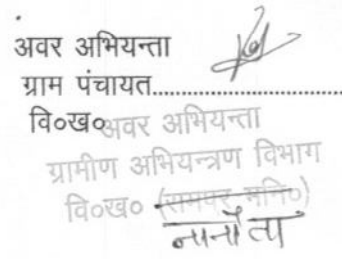 अवर अभियन्ता
ग्राम पंचायत..............................
वि०ख०
अवर अभियन्ता
ग्रामीण अभियन्त्रण विभाग
वि०ख० (रामपुर मनि०)
नानौता